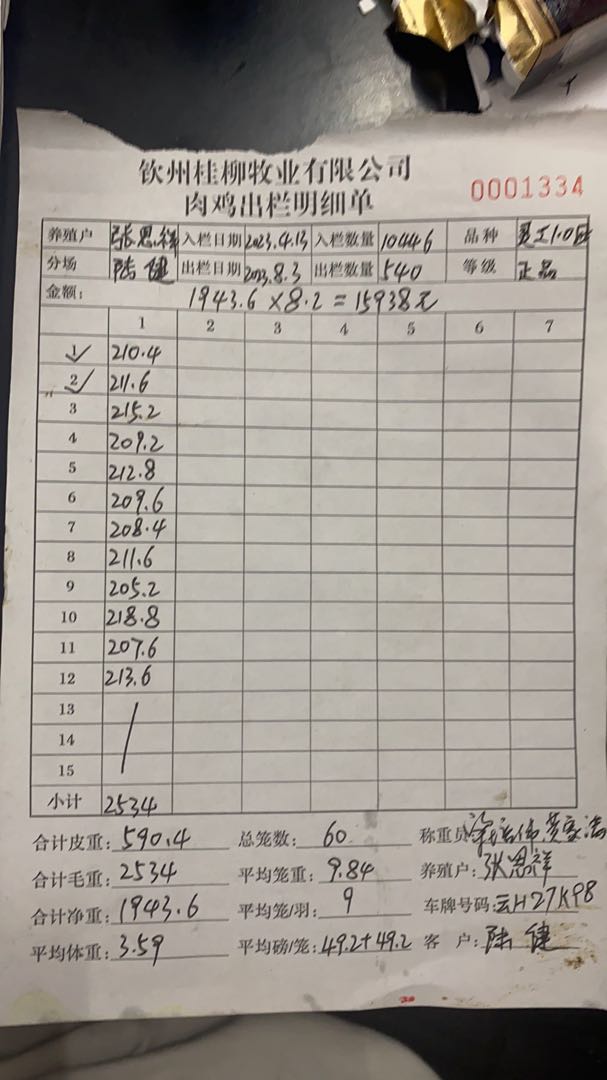 钦州桂柳牧业有限公司
肉鸡出栏明细单
0001334
养殖户 张思祥 入栏日期 2023.4.13 入栏数量 10446 品种
分场 陆健 出栏日期 2023.8.3 出栏数量 540 等级 正品
金额: 1943.6×8.2=15938元
1 2 3 4 5 6 7
1 210.4
2 211.6
3 215.2
4 209.2
5 212.8
6 209.6
7 208.4
8 211.6
9 205.2
10 218.8
11 207.6
12 213.6
13
14
15
小计 2534
合计皮重: 590.4 总笼数: 60 称重员
合计毛重: 2534 平均笼重: 9.84 养殖户: 张思祥
合计净重: 1943.6 平均笼/羽: 9 车牌号码: 云H27K98
平均体重: 3.59 平均磅/笼: 49.2+49.2 客户: 陆健